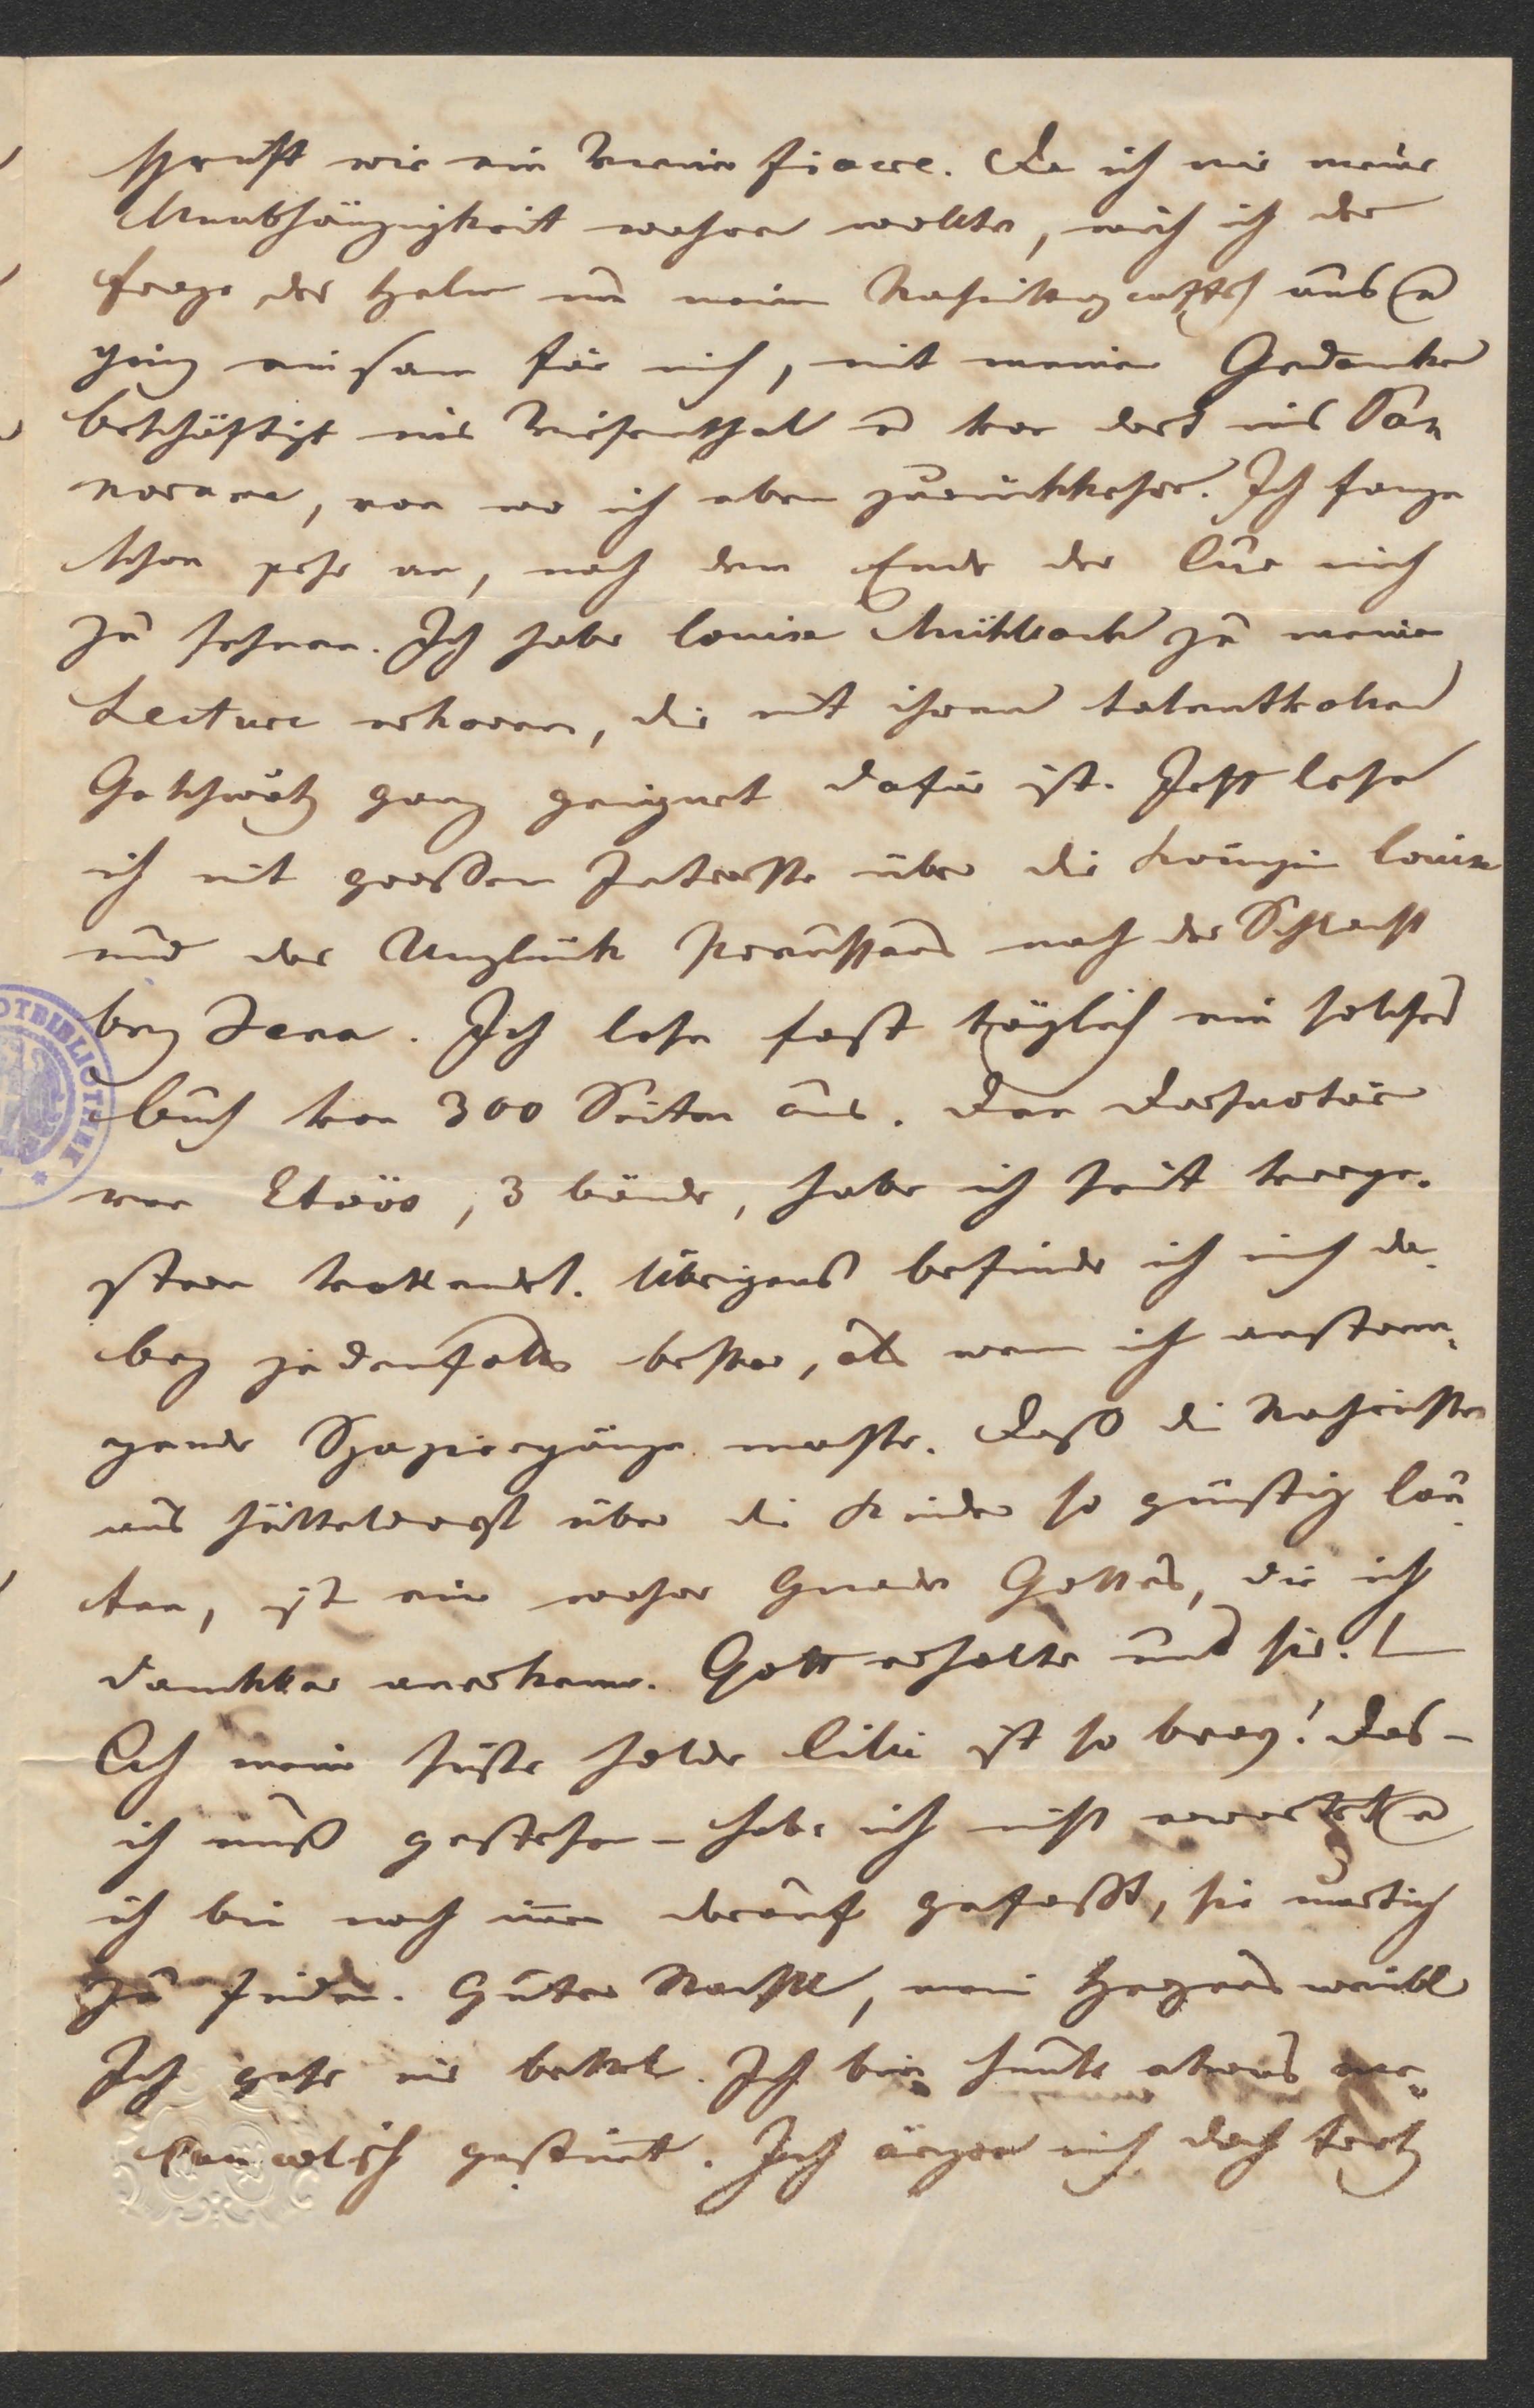 schnauft wie ein Wiener fiacre. Da ich mir meine
Unabhängigkeit wahren wollte, wich ich der
Frage der Halm um meine Nachmittag aus u
ging einsam für mich, mit meinen Gedanken
beschäftigt ins Wiesenthal u von dort ins Pa-
norama, von wo ich eben zurückkehre. Ich fange
schon sehr an, nach dem Ende der Cur mich
zu sehnen. Ich habe Louise Mühlbach zu meiner
Lecture erkoren, die mit ihrem talentvollen
Geschwätz ganz geeignet dafür ist. Jetzt lese
ich mit großem Interesse über die Königin Louise
und das Unglück Preussens nach der Schlacht
bey Jena. Ich lese fast täglich ein solches
Buch von 300 Seiten aus. Den Dorfnotär
von Etvös, 3 Bände, habe ich seit vorge-
stern vollendet. Übrigens befinde ich mich da-
bey jedenfalls besser, als wenn ich anstren-
gende Spaziergänge machte. Daß die Nachrichten
aus Hütteldorf über die Kinder so günstig lau-
ten, ist eine wahre Gnade Gottes, die ich
dankbar anerkenne. Gott erhalte uns sie. /
Ach meine süße holde Lilli ist so brav! Das –
ich muß gestehen – habe ich nicht erwartet u
ich bin noch immer darauf gefaßt, sie
zu finden. Gute Nacht, mein Herzensweibl
Ich gehe ins bettel. Ich bin heute etwas me-
lancolisch gestimt. Ich ärgere mich doch trotz